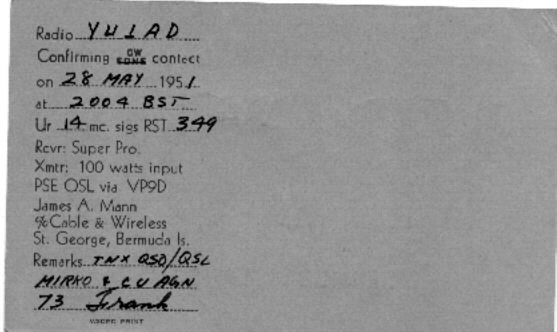 Radio YU1AD
Confirming CW contact
on 28 MAY 1951
at 2004 BST
Ur 14 mc. sigs RST 349
Rcvr: Super Pro.
Xmtr: 100 watts input
PSE QSL via VP9D
James A. Mann
% Cable & Wireless
St. George, Bermuda Is.
Remarks TNX QSO/QSL
MIRKO & CU AGN
73 Frank
PRINT